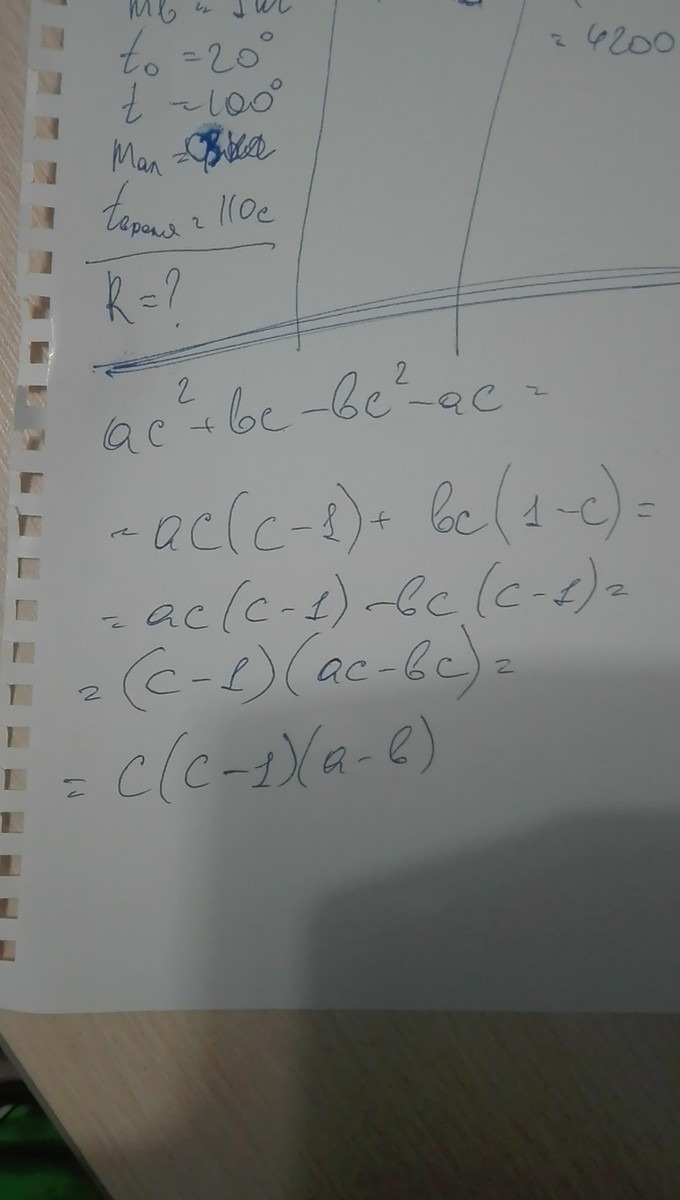 = 4200
t₀ = 20°
t = 100°
mал =
tвремя = 110с
R = ?
ac² + bc - bc² - ac =
= ac(c-1) + bc(1-c) =
= ac(c-1) - bc(c-1) =
= (c-1)(ac-bc) =
= c(c-1)(a-b)